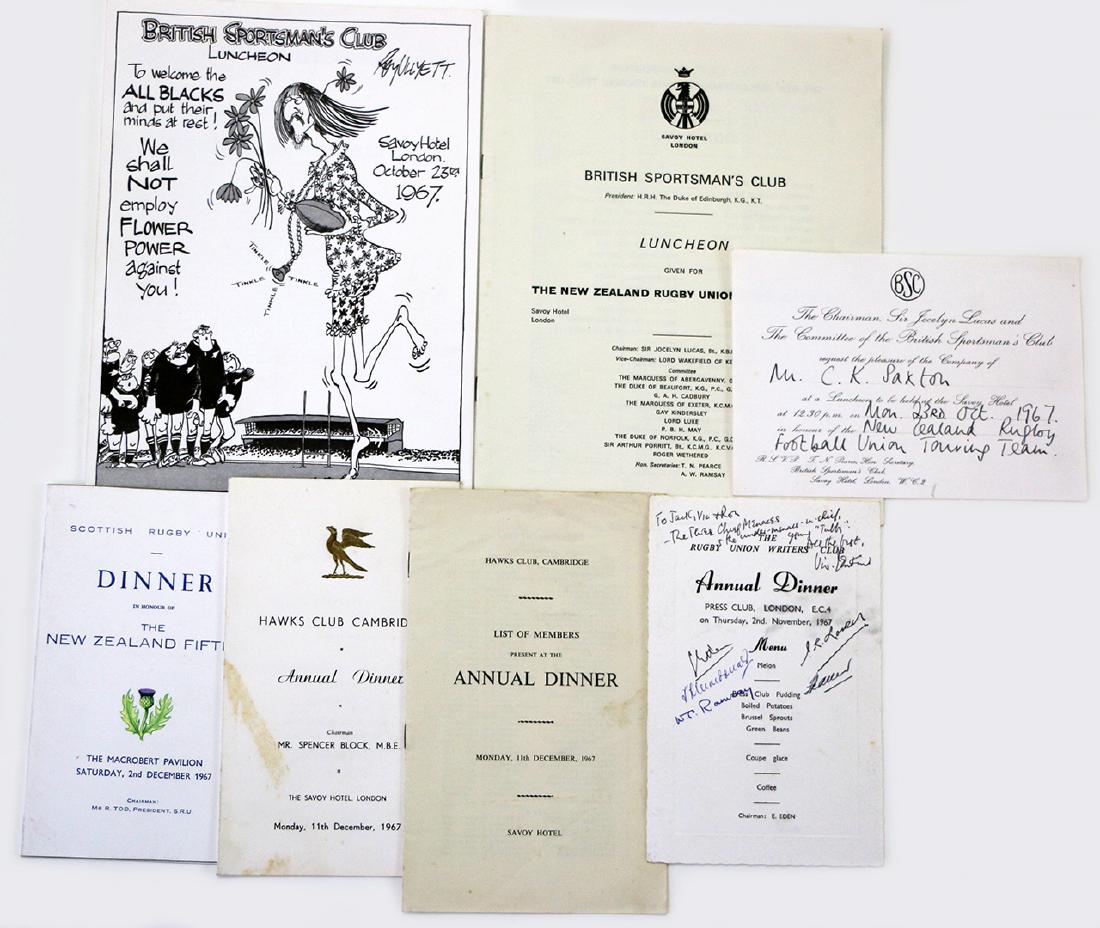 BRITISH SPORTSMAN'S CLUB
LUNCHEON
To welcome the
ALL BLACKS
and put their
minds at rest!
We
shall
NOT
employ
FLOWER
POWER
against
you!
Roy Ullyett.
Savoy Hotel
London.
October 23rd
1967.
TINKLE
TINKLE
TINKLE
TINKLE
SAVOY HOTEL
LONDON
BRITISH SPORTSMAN'S CLUB
President: H.R.H. The Duke of Edinburgh, K.G., K.T.
LUNCHEON
GIVEN FOR
THE NEW ZEALAND RUGBY UNION
Savoy Hotel
London
Chairman: SIR JOCELYN LUCAS, Bt., K.B.
Vice-Chairman: LORD WAKEFIELD OF KE
Committee
THE MARQUESS OF ABERGAVENNY,
THE DUKE OF BEAUFORT, K.G., P.C., G.
G. A. H. CADBURY
THE MARQUESS OF EXETER, K.C.M.
GAY KINDERSLEY
LORD LUKE
P. B. H. MAY
THE DUKE OF NORFOLK, K.G., P.C., G.
SIR ARTHUR PORRITT, Bt., K.C.M.G., K.C.V.
ROGER WETHERED
Hon. Secretaries: T. N. PEARCE
A. W. RAMSAY
BSC
The Chairman, Sir Jocelyn Lucas and
The Committee of the British Sportsman's Club
request the pleasure of the Company of
Mr. C. K. Saxton
at a Luncheon to be held at the Savoy Hotel
at 12.30 p.m. on Mon. 23rd Oct. 1967.
in honour of the New Zealand Rugby
Football Union Touring Team.
R.S.V.P. T. N. Pearce, Hon. Secretary
British Sportsman's Club
Savoy Hotel, London W.C.2
SCOTTISH RUGBY UNI
DINNER
IN HONOUR OF
THE
NEW ZEALAND FIFT
THE MACROBERT PAVILION
SATURDAY, 2ND DECEMBER 1967
CHAIRMAN:
MR R. TOD, PRESIDENT, S.R.U.
HAWKS CLUB CAMBRID
Annual Dinner
Chairman
MR. SPENCER BLOCK, M.B.E.
THE SAVOY HOTEL, LONDON
Monday, 11th December, 1967
HAWKS CLUB, CAMBRIDGE
LIST OF MEMBERS
PRESENT AT THE
ANNUAL DINNER
MONDAY, 11th DECEMBER, 1967
SAVOY HOTEL
To Jack, Vic & Ron
- The Three Chief Menaces
THE
RUGBY UNION WRITERS' CLUB
Annual Dinner
PRESS CLUB, LONDON, E.C.4
on Thursday, 2nd. November, 1967
Menu
Melon
Club Pudding
Boiled Potatoes
Brussel Sprouts
Green Beans
Coupe glace
Coffee
Chairman: E. EDEN
W.T. Ramsay